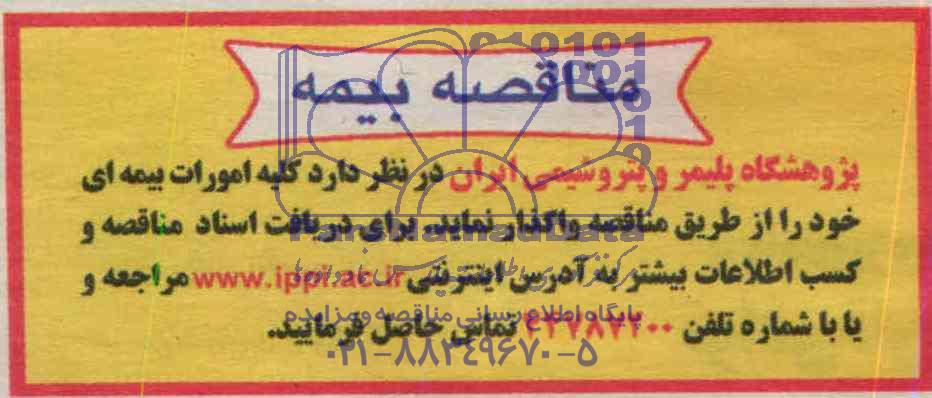 مناقصه بیمه
پژوهشگاه پلیمر و پتروشیمی ایران در نظر دارد کلیه امورات بیمه ای
خود را از طریق مناقصه واگذار نماید. برای دریافت اسناد مناقصه و
کسب اطلاعات بیشتر به آدرس اینترنتی www.ippi.ac.ir مراجعه و
یا با شماره تلفن تماس حاصل فرمایید.
پایگاه اطلاع رسانی مناقصه و مزایده
۰۲۱-۸۸۳۴۹۶۷۰-۵